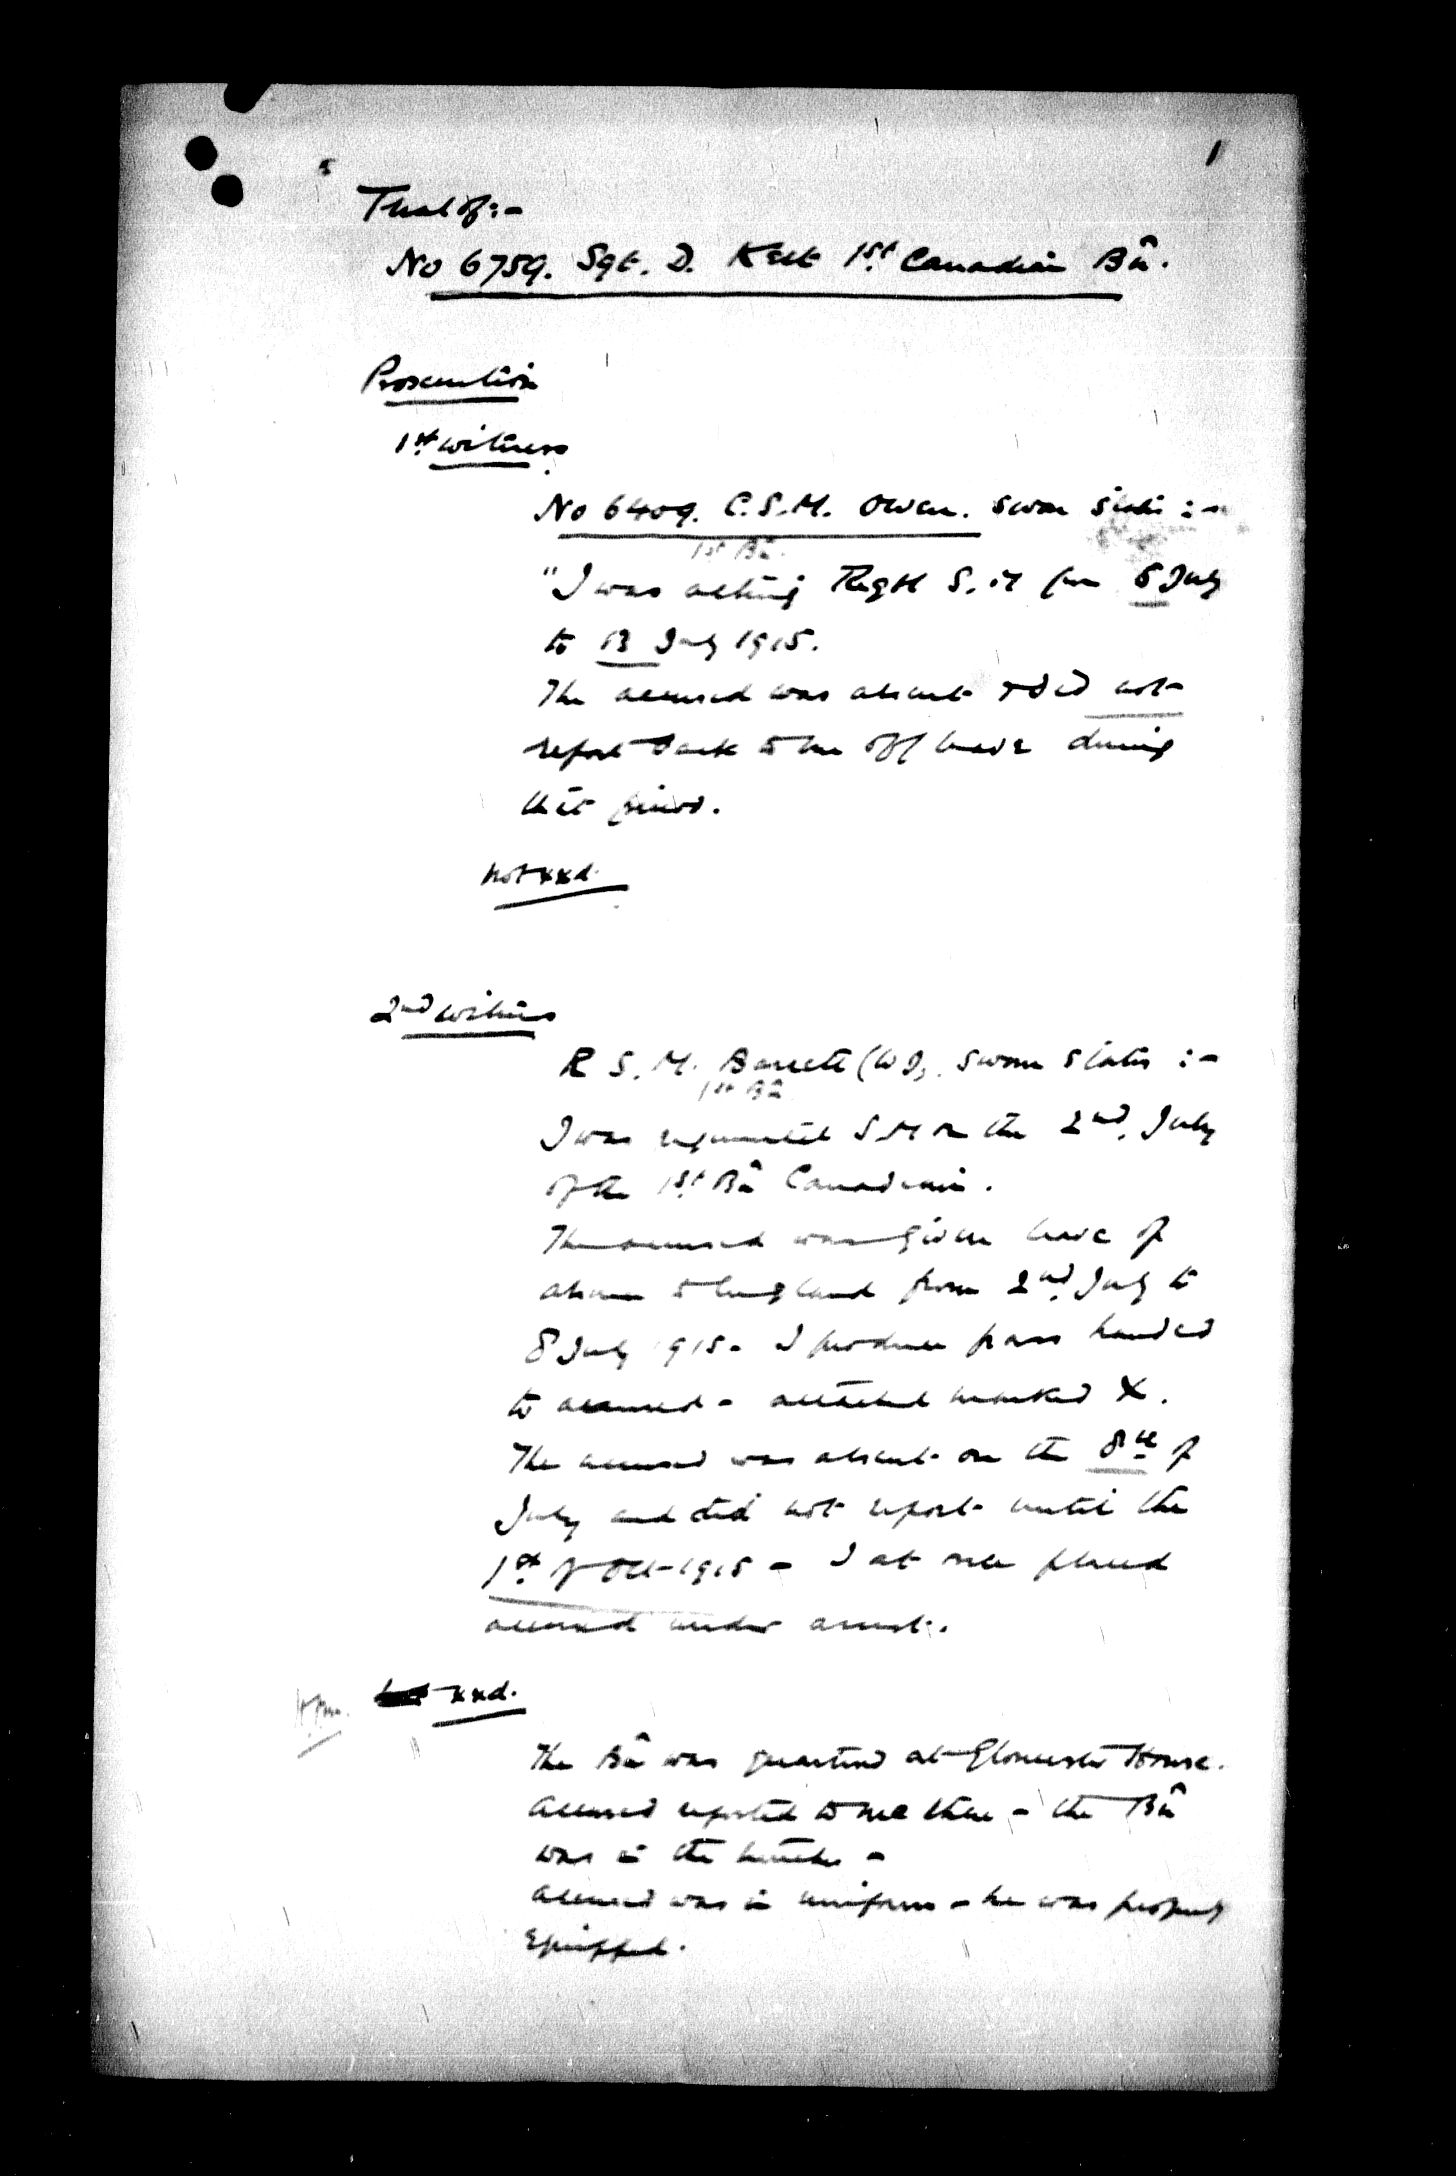 1
Trial of :-
No 6759. Sgt. D. Kett 1st Canadian Bn.
Prosecution
1st witness
No 6409. C.S.M. Owen. sworn states :-
1st Bn.
"I was acting Regtl S.M from 6 July
to 13 July 1915.
The accused was absent & did not
report back to me off leave during
that period.
Not xxd.
2nd witness
R.S.M. Barrett (W J), sworn states :-
1st Bn
I was regimental S M on the 2nd July
of the 1st Bn Canadian.
The accused was given leave of
absence to England from 2nd July to
8 July 1915 - I produce pass handed
to accused - attached marked X.
The accused was absent on the 8th of
July and did not report until the
1st of Oct 1915 - I at once placed
accused under arrest.
xxd.
The Bn was quartered at Gloucester House.
Accused reported to me there - the Bn
was in the trenches -
Accused was in uniform - he was properly
equipped.